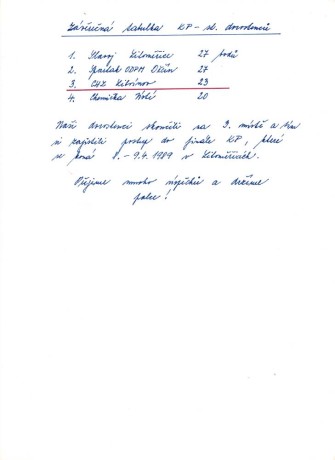 Závěrečná tabulka KP - st. dorostenců
1. Slavoj Litoměřice 27 bodů
2. Spartak ODPM Děčín 27
3. CHZ Litvínov 23
4. Chemička Ústí 20
Naši dorostenci skončili na 3. místě a tím
si zajistili postup do finále KP, které
se koná 8. - 9.4. 1989 v Litoměřicích.
Přejeme mnoho úspěchů a držíme
palce!